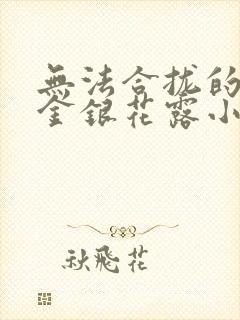 無法合拢的
金銀花露小
秋飛花